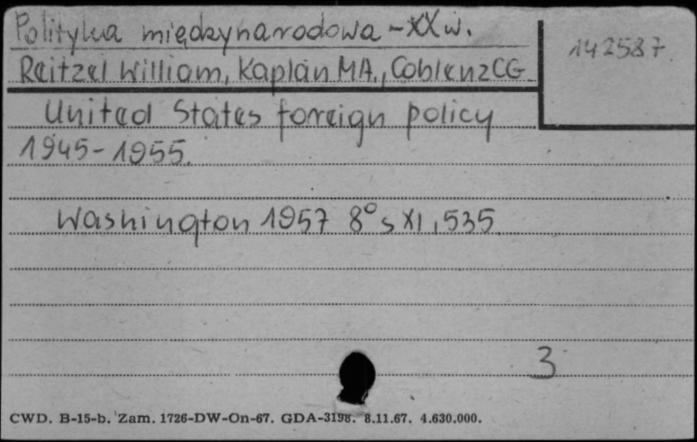 Polityka międzynarodowa - XX w.
142587
Reitzel William, Kaplan MA., Coblenz CG
United States foreign policy
1945-1955.
Washington 1957 8° s XI, 535
3
CWD. B-15-b. Zam. 1726-DW-On-67. GDA-3198. 8.11.67. 4.630.000.